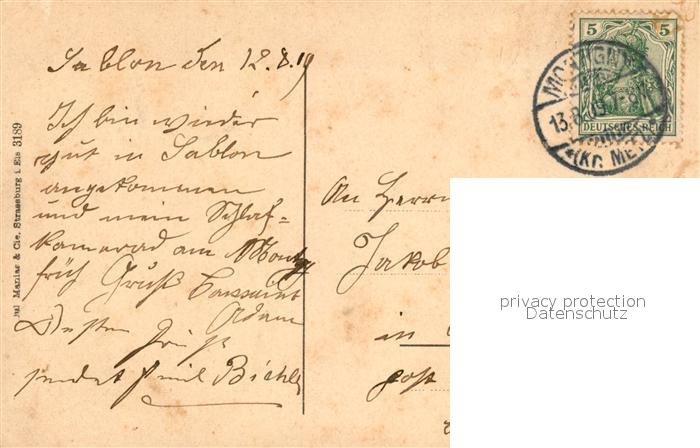 Sablon den 12.8.09
Ich bin wieder
gut in Sablon
angekommen
und mein Schlaf-
kamerad am Montag
früh Gruß Toussaint
Adam
Besten Gruß
sendet Emil Bichler
Jul Manias & Cie. Strassburg i. Els 3189
5 5
DEUTSCHES REICH
13.8.09
(Kr. MET
An Herrn
Jakob
in
post
privacy protection
Datenschutz